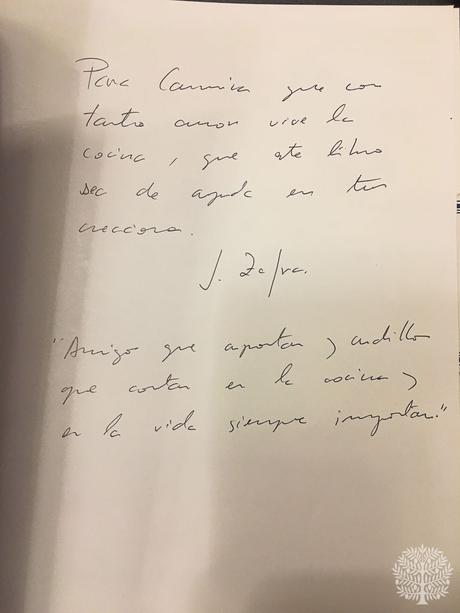 Para Carmina que con
tanto amor vive la
cocina, que este libro
sea de ayuda en tus
creaciones.
J. Zafra.
"Amigos que aportan y cuchillos
que cortan en la cocina y
en la vida siempre importan."